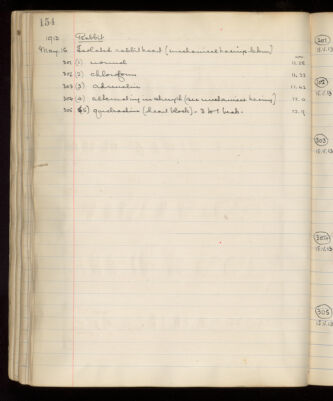 154
1913 Rabbit
May. 15 Isolated rabbit heart (mechanical
301 (1) normal 11.28
302 (2) chloroform 11.33
303 (3) Adrenalin 11.43
304 (4) alternating in strength (see mechanical tracing) 12.0
305 (5) quinidine (heart block) - 3 to 1 beat. 12.9
301
15.V.13
302
15.V.13
303
15.V.13
304
15.V.13
305
15.V.13